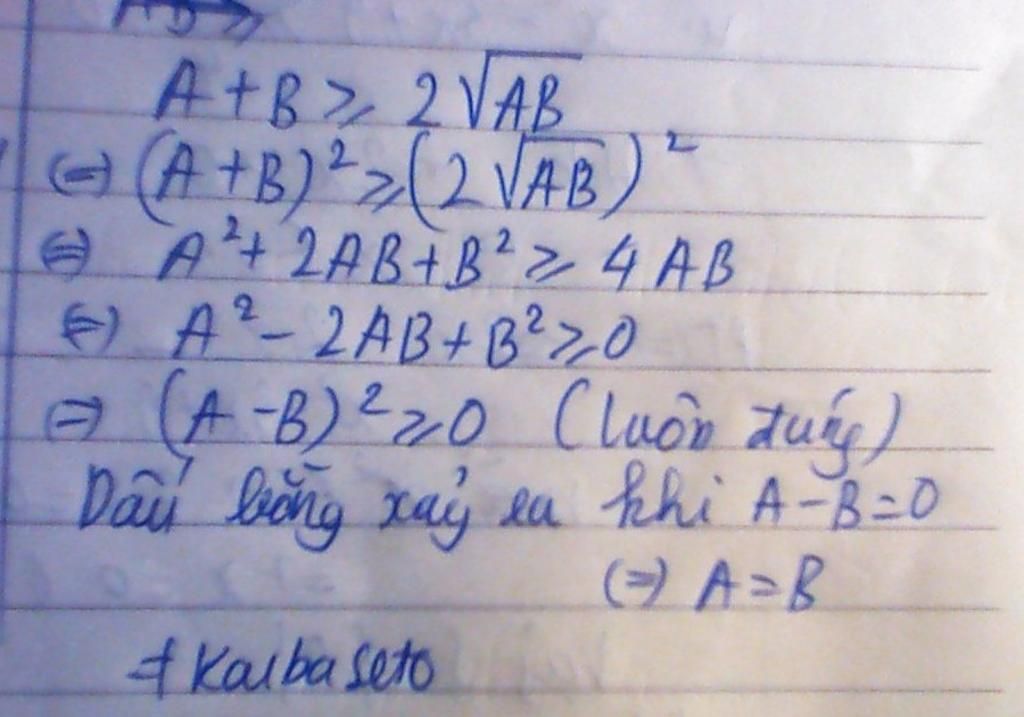 A + B ≥ 2√AB
(=) (A + B)² ≥ (2√AB)²
(=) A² + 2AB + B² ≥ 4AB
(=) A² - 2AB + B² ≥ 0
=) (A - B)² ≥ 0 (luôn đúng)
Dấu bằng xảy ra khi A - B = 0
(=) A = B
Kaibaseto